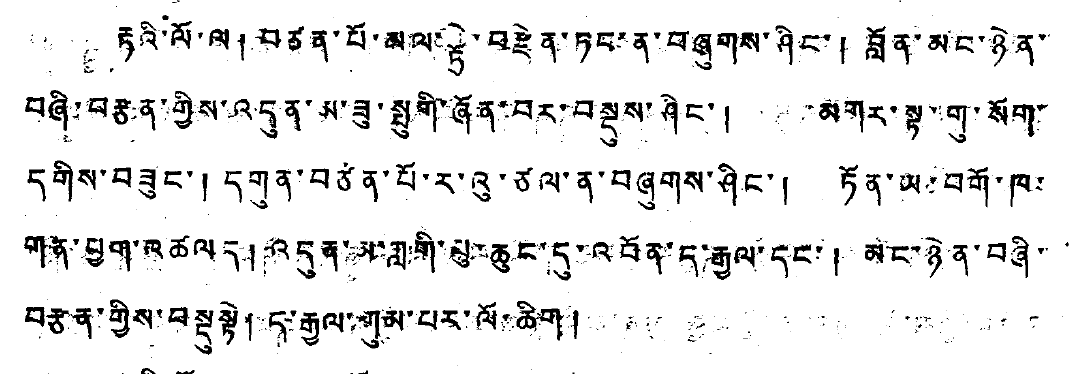 རྟའི་ལོ་ལ། བཙན་པོ་མལ་ཏྲོ་བརྫེན་ཏང་ན་བཞུགས་ཤིང་། བློན་མང་ཉེན་
བཞི་བརྩན་གྱིས་འདུན་མ་ཟུ་སྤུགི་ཞོན་བར་བསྡུས་ཤིང་། མགར་སྟ་གུ་སོག་
དགིས་བཟུང་། དགུན་བཙན་པོ་ར་འུ་ཙལ་ན་བཞུགས་ཤིང་། ཏོན་ཡ་བགོ་ཁ་
གན་ཕྱག་འཚལད། འདུན་མ་གླགི་པུ་ཆུང་དུ་འབོན་ད་རྒྱལ་དང་། མང་ཉེན་བཞི་
བརྩན་གྱིས་བསྡུསྟེ། ད་རྒྱལ་གུམ་པར་ལོ་ཆིག།